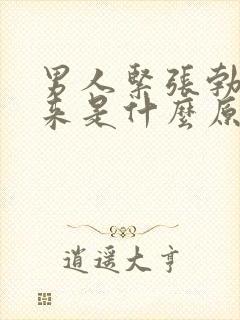 男人緊張勃
來是什麼原
逍遥大亨